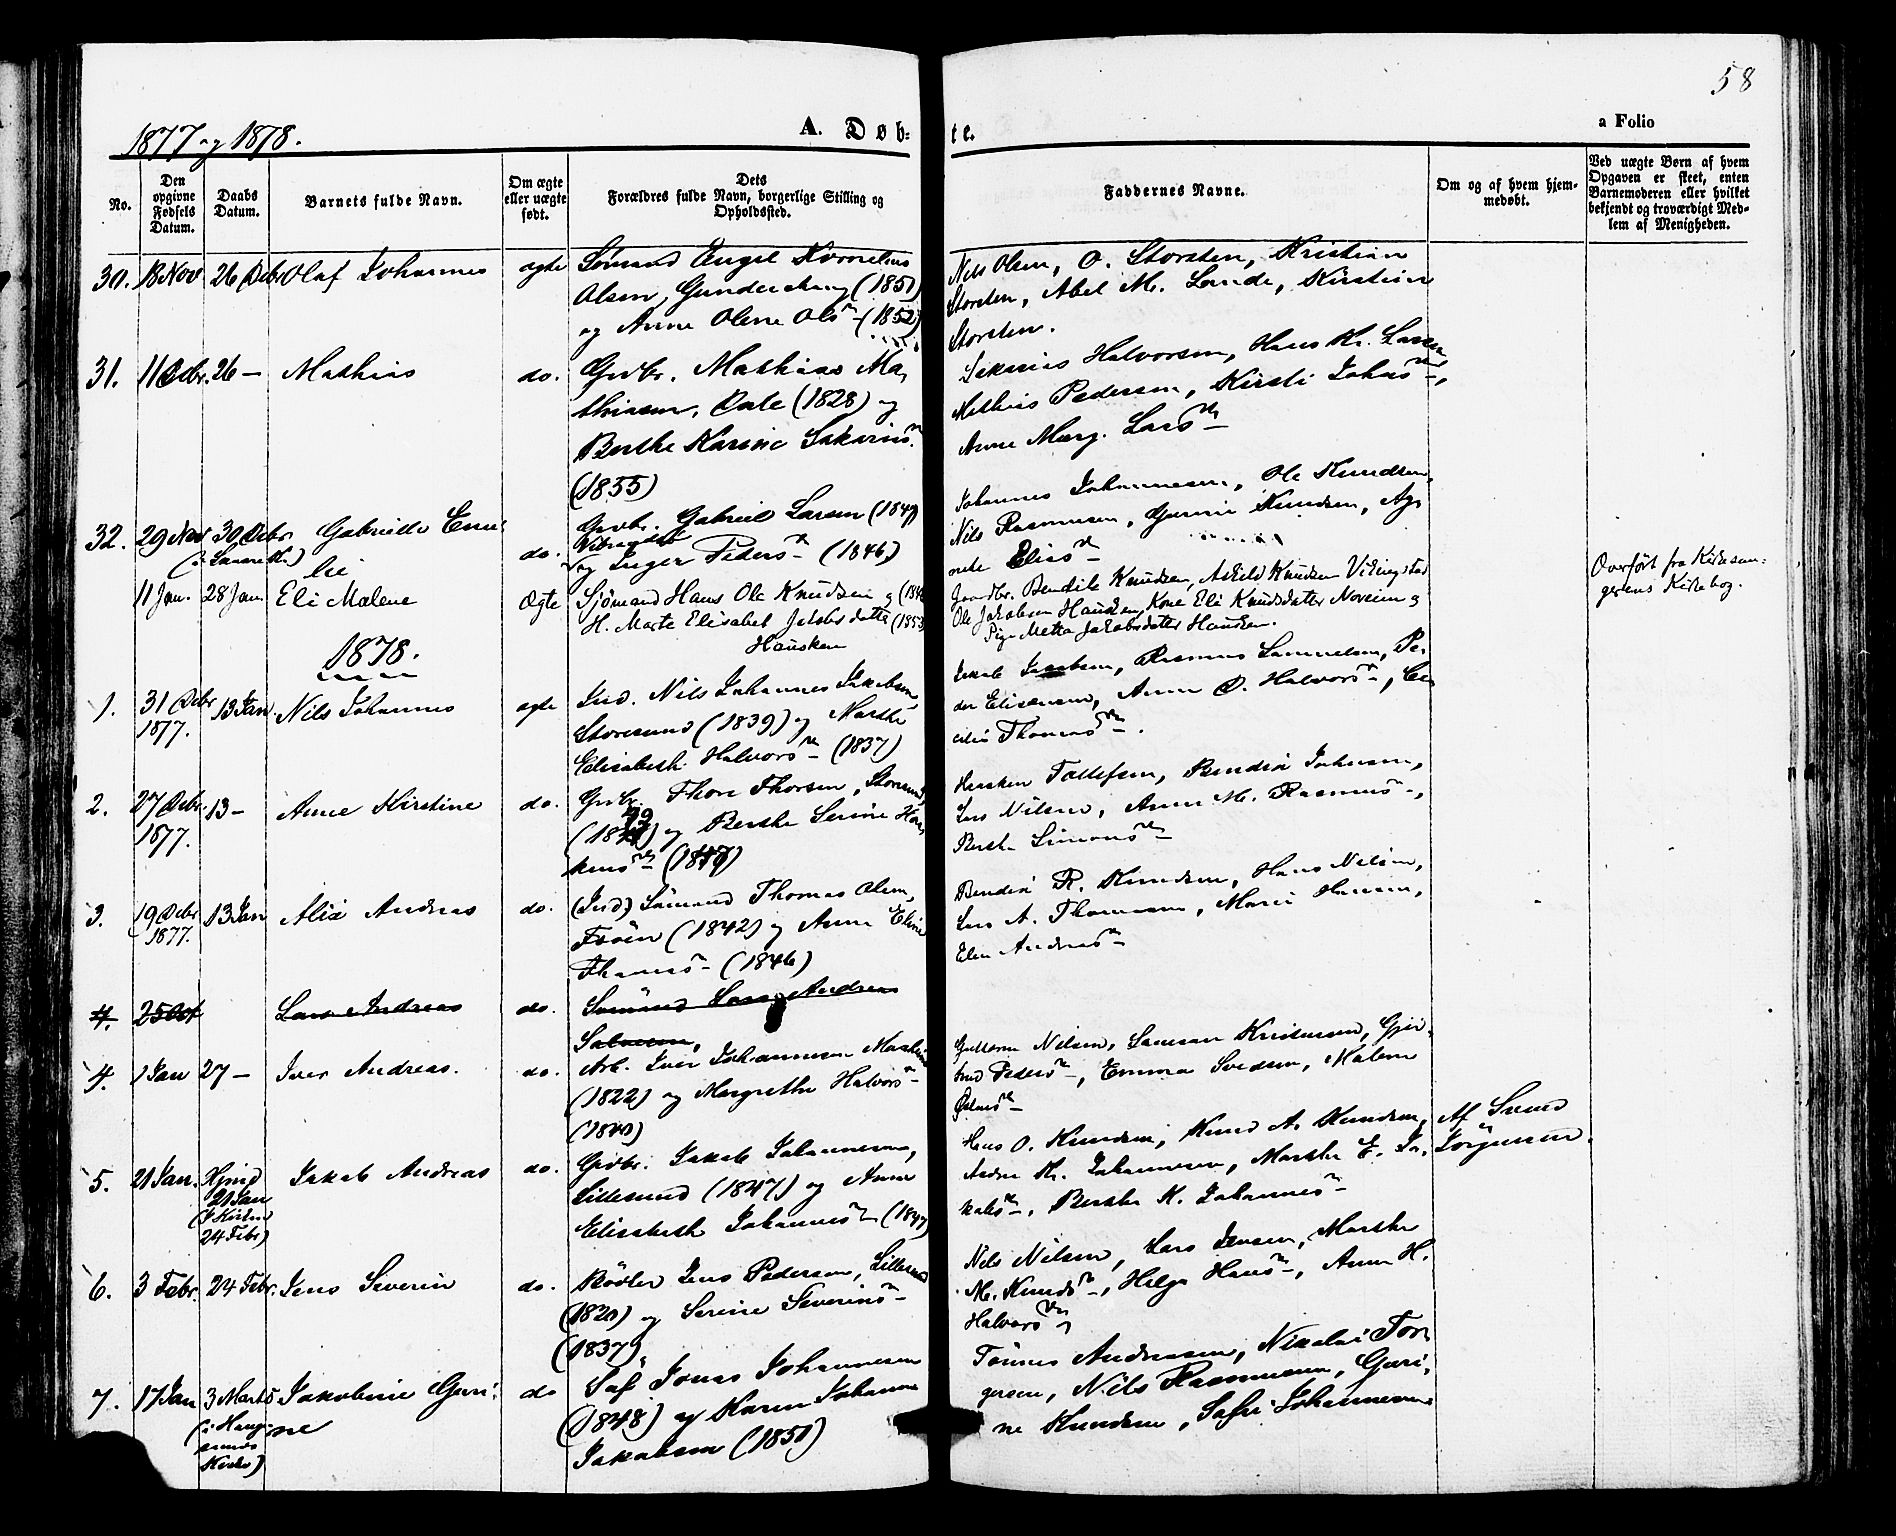 58
1877 og 1878.
A. Døb-
te.
a Folio
No.
Den
opgivne
Fødsels
Datum.
Daabs
Datum.
Barnets fulde Navn.
Om ægte
eller uægte
født.
Dets
Forældres fulde Navn, borgerlige Stilling og
Opholdssted.
Faddernes Navne.
Om og af hvem hjem-
medøbt.
Ved uægte Børn af hvem
Opgaven er skeet, enten
Barnemoderen eller hvilket
bekjendt og troværdigt Med-
lem af Menigheden.
30. 18 Nov 26 Debr Olaf Johannes ægte Sømand Engel Kornelius
Olsen, (1851)
og Anne Olene Olsdr (1852)
Nils Olsen, O. Storsten, Kristian
Storsten, Abel M. Lande, Kirstine
Storsten.
31. 11 Debr. 26 — Mathias do. Grdbr. Mathias Ma-
thiasen, Dale (1828) og
Berthe Karine Sakariasdr
(1855)
Sakarias Halvorsen, Hans Kr. Larsen
Mathias Pedersen, Kirsti Johns dr,
Anne Marg. Larsdr
32. 29 Nov 30 Debr. Gabrielle Emi-
lie do. Grdbr. Gabriel Larsen (1849)
og Inger Pedersdr (1846)
Johannes Johannesen, Ole Knudsen,
Nils Rasmussen, Gurine Knudsen, Ag-
nete Eliasdr
11 Jan. 28 Jan. Eli Malene Ægte Sjømand Hans Ole Knudsen og
H. Marte Elisabet Jakobsdatter (1853)
Hausken
Gaardbr. Bendik Knudsen, Askild Knudsen Vikingstad
Ole Jakobsen Hausken, Kone Eli Knudsdatter og
Pige Metta Jakobsdatter Hausken.
Overført fra Kirkesan-
gerens Kirkebog.
1878.
1. 31 Debr 1877. 13 Jan Nils Johannes ægte Ind. Nils Johannes Jakobsen
Storesund (1839) og Marthe
Elisabeth Halvorsdr (1837)
Jakob Jakobsen, Rasmus Samuelsen, Pe-
der Eliassen, Anne D. Halvorsdr, Ce-
cilie Thomasdr.
2. 27 Debr. 1877. 13 — Anne Kirstine do. Grdbr. Thore Thorsen, Storesund,
og Berthe Serine Haa-
kensdr
Haaken Tollefsen, Bendix Johnsen,
Lars Nilsen, Anne M. Rasmusdr,
Berthe Simonsdr
3. 19 Debr 1877. 13 Jan Alix Andreas do. (Ind) Sømand Thomas Olsen,
(1842) og Anne Eline
Thomasdr (1846)
Bendix R. Knudsen, Hans Nilsen,
Lars A. Thomasen, Marie Hansen,
Elen Andreasdr
4. 25 Oct Lars Andreas do. Sømand Lars Andreas
Salvesen,
4. 1 Jan 27 — Iver Andreas. do. Arb. Iver Johannesen
(1822) og Margrethe Halvorsdr
(1840)
Guttorm Nilsen, Samson Kristensen, Gjer-
trud Pedersdr, Emma Svedsen, Malene
5. 21 Jan. Hjmd
21 Jan
(I Kirken
24 Febr) Jakob Andreas do. Grdbr. Jakob Johannesen,
Lillesund (1847) og Anne
Elisabeth Johannesdr (1847)
Hans O. Knudsen, Knud A. Knudsen,
Andr. Kr. Johannesen, Marthe E. Ja-
kobsdr, Berthe K. Johannesdr
Af Svend
Jörgensen.
6. 3 Febr. 24 Febr. Jens Severin do. Bødker Jens Pedersen, Lillesund
(1820) og Serine Severinsdr
(1837)
Nils Nilsen, Lars Jensen, Marthe
M. Knudsdr, Helga Hansdr, Anne H.
Halvorsdr
7. 17 Jan 3 Marts
(i Hauge-
sunds
Kirke) Jakobine Guri-
ne do Søf Jonas Johannesen
(1848) og Karen Johanne
Jakobsen (1851)
Tønnes Andreasen, Nikolai Tor-
gersen, Nils Rasmussen, Guri-
ne Knudsen, Sofie Johannesen